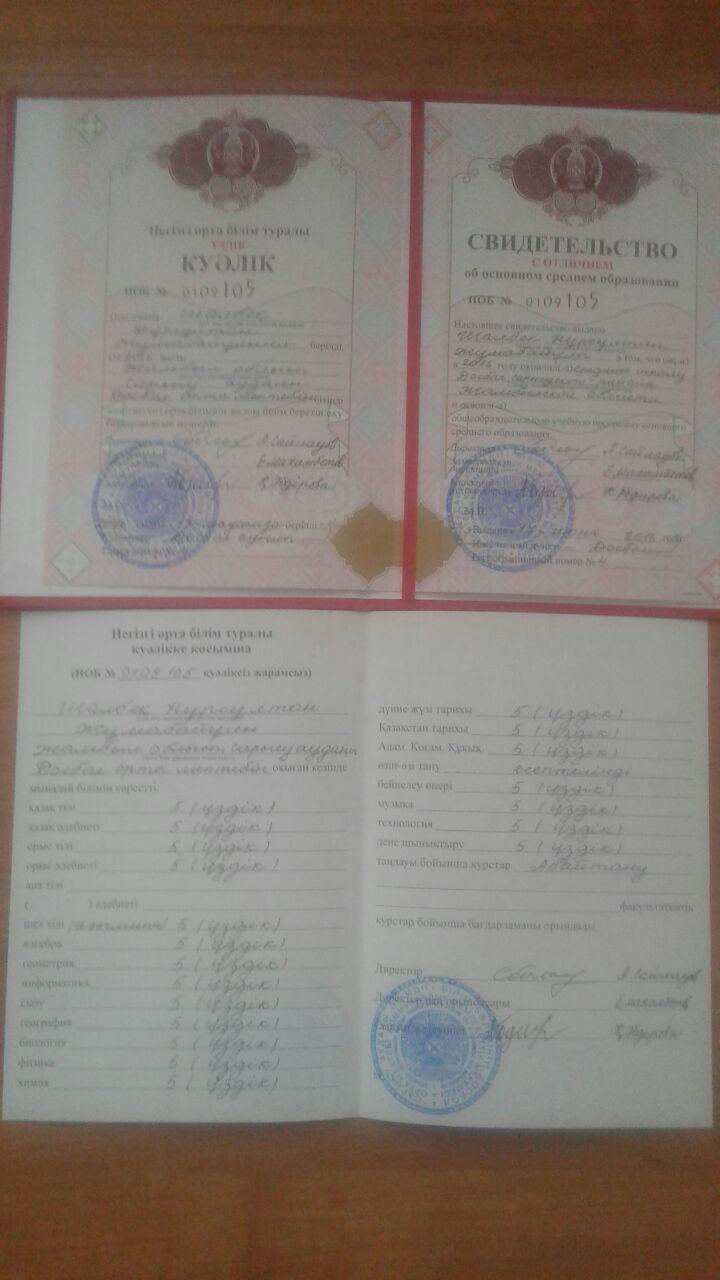 Негізгі орта білім туралы
ҮЗДІК
КУӘЛІК
НОБ № 0109105
Осы куәлік Шалбек
Нурсултан
Жумабайұлына берілді.
Ол 2016 жылы
Жамбыл облысы
Сарысу ауданы
Досбол орта мектебін бітірді
және негізгі орта білімнің жалпы білім беретін оқу
бағдарламасын меңгерді.
А. Сейлауов
Е. Махамбетов
Қ. Қыдірова
М.О.
СВИДЕТЕЛЬСТВО
С ОТЛИЧИЕМ
об основном среднем образовании
НОБ № 0109105
Настоящее свидетельство выдано
Шалбек Нурсултан
Жумабайұлы в том, что он(-а)
в 2016 году окончил(-а) среднюю школу
Досбол Сарысуского района
Жамбылской области
и освоил(-а)
общеобразовательную учебную программу основного
среднего образования.
Директор А. Сейлауов
Е. Махамбетов
Қ. Қыдірова
М.П.
Выдано 17 июня 2016 года
Населенный пункт Досбол
Регистрационный номер № 4
Негізгі орта білім туралы
куәлікке қосымша
(НОБ № 0109105 куәліксіз жарамсыз)
Шалбек Нурсултан
Жумабайұлы
Жамбыл облысы Сарысу ауданы
Досбол орта мектебін оқыған кезінде
мынадай білімін көрсетті:
қазақ тілі 5 (үздік)
қазақ әдебиеті 5 (үздік)
орыс тілі 5 (үздік)
орыс әдебиеті 5 (үздік)
ана тілі
( ) әдебиеті
шет тілі (ағылшын) 5 (үздік)
алгебра 5 (үздік)
геометрия 5 (үздік)
информатика 5 (үздік)
сызу 5 (үздік)
география 5 (үздік)
биология 5 (үздік)
физика 5 (үздік)
химия 5 (үздік)
дүние жүзі тарихы 5 (үздік)
Қазақстан тарихы 5 (үздік)
Адам. Қоғам. Құқық. 5 (үздік)
өзін-өзі тану есептелінді
бейнелеу өнері 5 (үздік)
музыка 5 (үздік)
технология 5 (үздік)
дене шынықтыру 5 (үздік)
таңдауы бойынша курстар Абайтану
факультативтік
курстар бойынша бағдарламаны орындады.
Директор А. Сейлауов
Директордың орынбасары Е. Махамбетов
Сынып жетекшісі Қ. Қыдірова